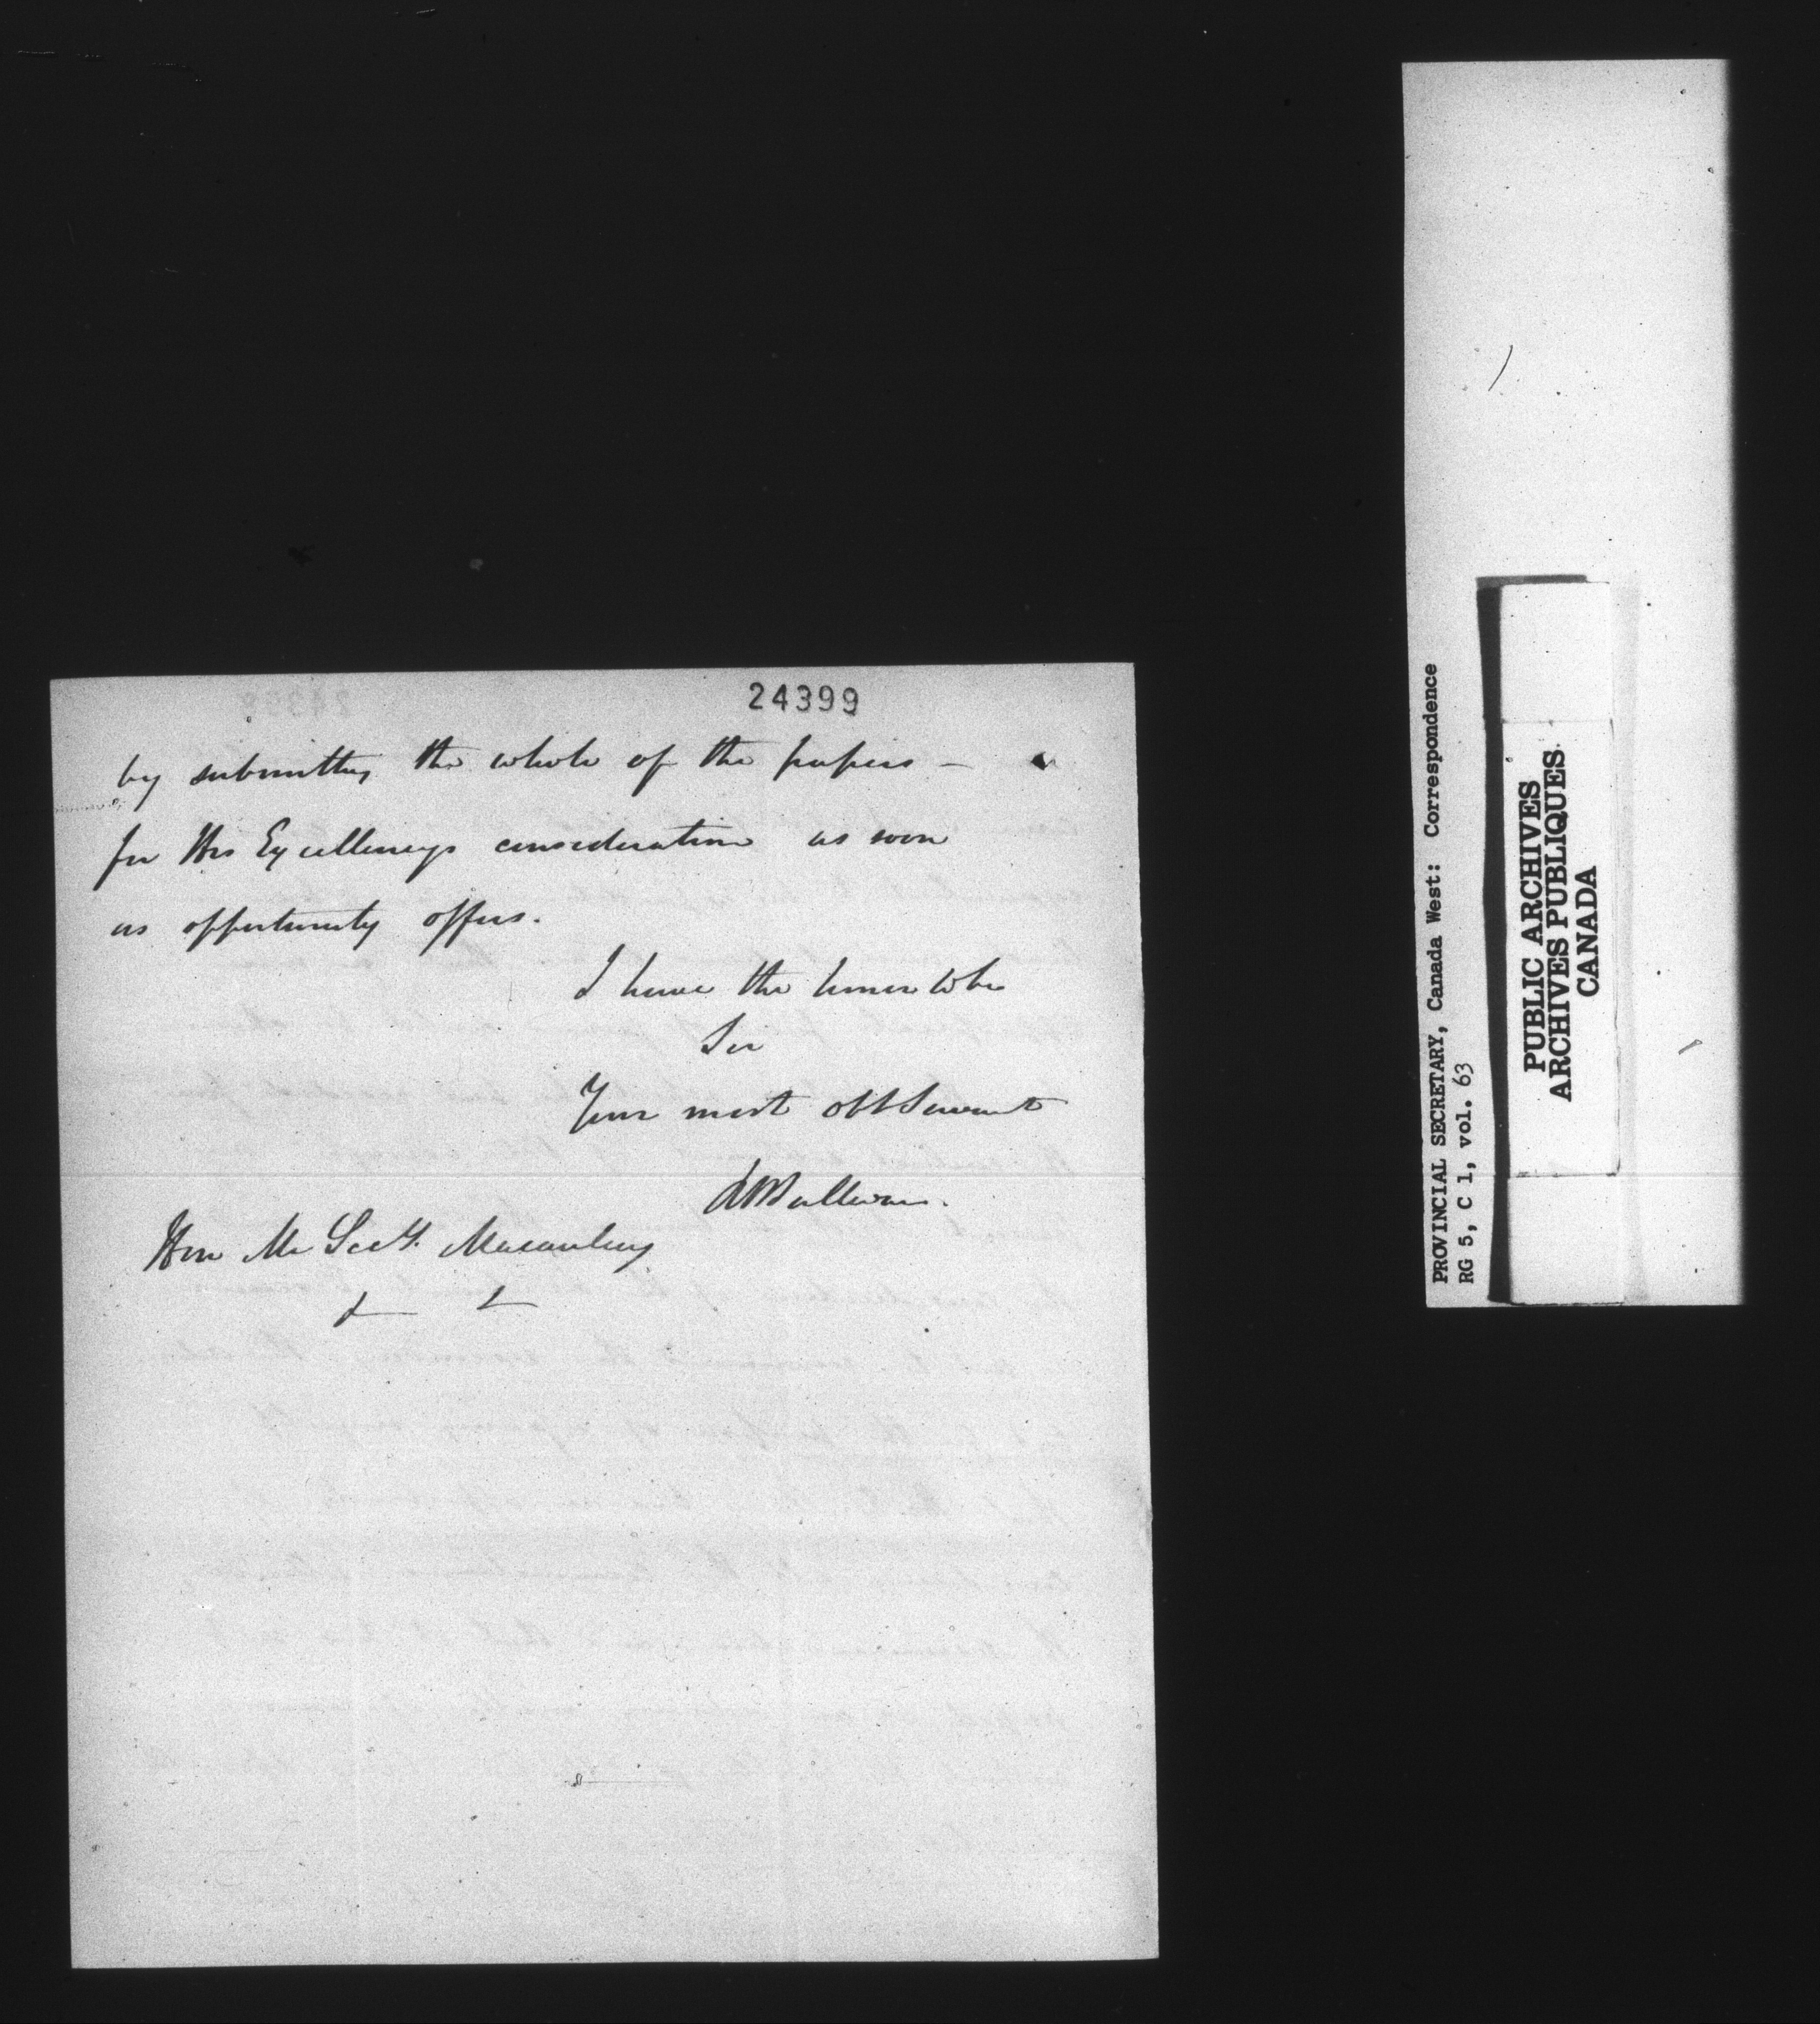 24399
by submitting the whole of the papers —
for His Excellencys consideration as soon
as opportunity offers.
I have the honor to be
Sir
Your most obt Servant
RBSullivan.
Hon Mr Secy. Macaulay
PROVINCIAL SECRETARY, Canada West: Correspondence
RG 5, C 1, vol. 63
PUBLIC ARCHIVES
ARCHIVES PUBLIQUES
CANADA